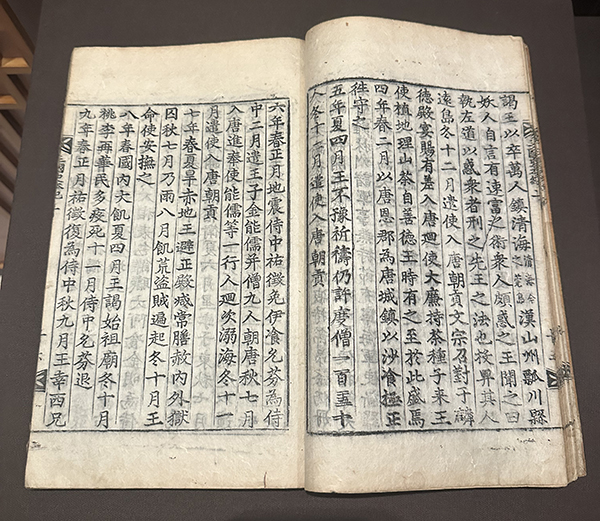 謁王以卒萬人鎮清海清海今之莞島漢山州瓢川縣
妖人自言有速富之術衆人頗惑之王聞之曰
執左道以惑衆者刑之先王之法也投畀其人
遠島冬十二月遣使入唐朝貢文宗召對于麟
德殿宴賜有差入唐廻使大廉持茶種子來王
使植地理山茶自善德王時有之至於此盛焉
四年春二月以唐恩郡為唐城鎮以沙飡極正
徃守之
五年夏四月王不豫祈禱仍許度僧一百五十
人冬十二月遣使入唐朝貢
六年春正月地震侍中祐徵免伊飡允芬為侍
中二月遣王子金能儒并僧九人朝唐秋七月
入唐進奉使能儒等一行人廻次溺海冬十一
月遣使入唐朝貢
七年春夏旱赤地王避正殿減常膳赦内外獄
囚秋七月乃雨八月飢荒盜賊遍起冬十月王
命使安撫之
八年春國内大飢夏四月王謁始祖廟冬十月
桃李再華民多疫死十一月侍中允芬退
九年春正月祐徵復為侍中秋九月王幸西兄